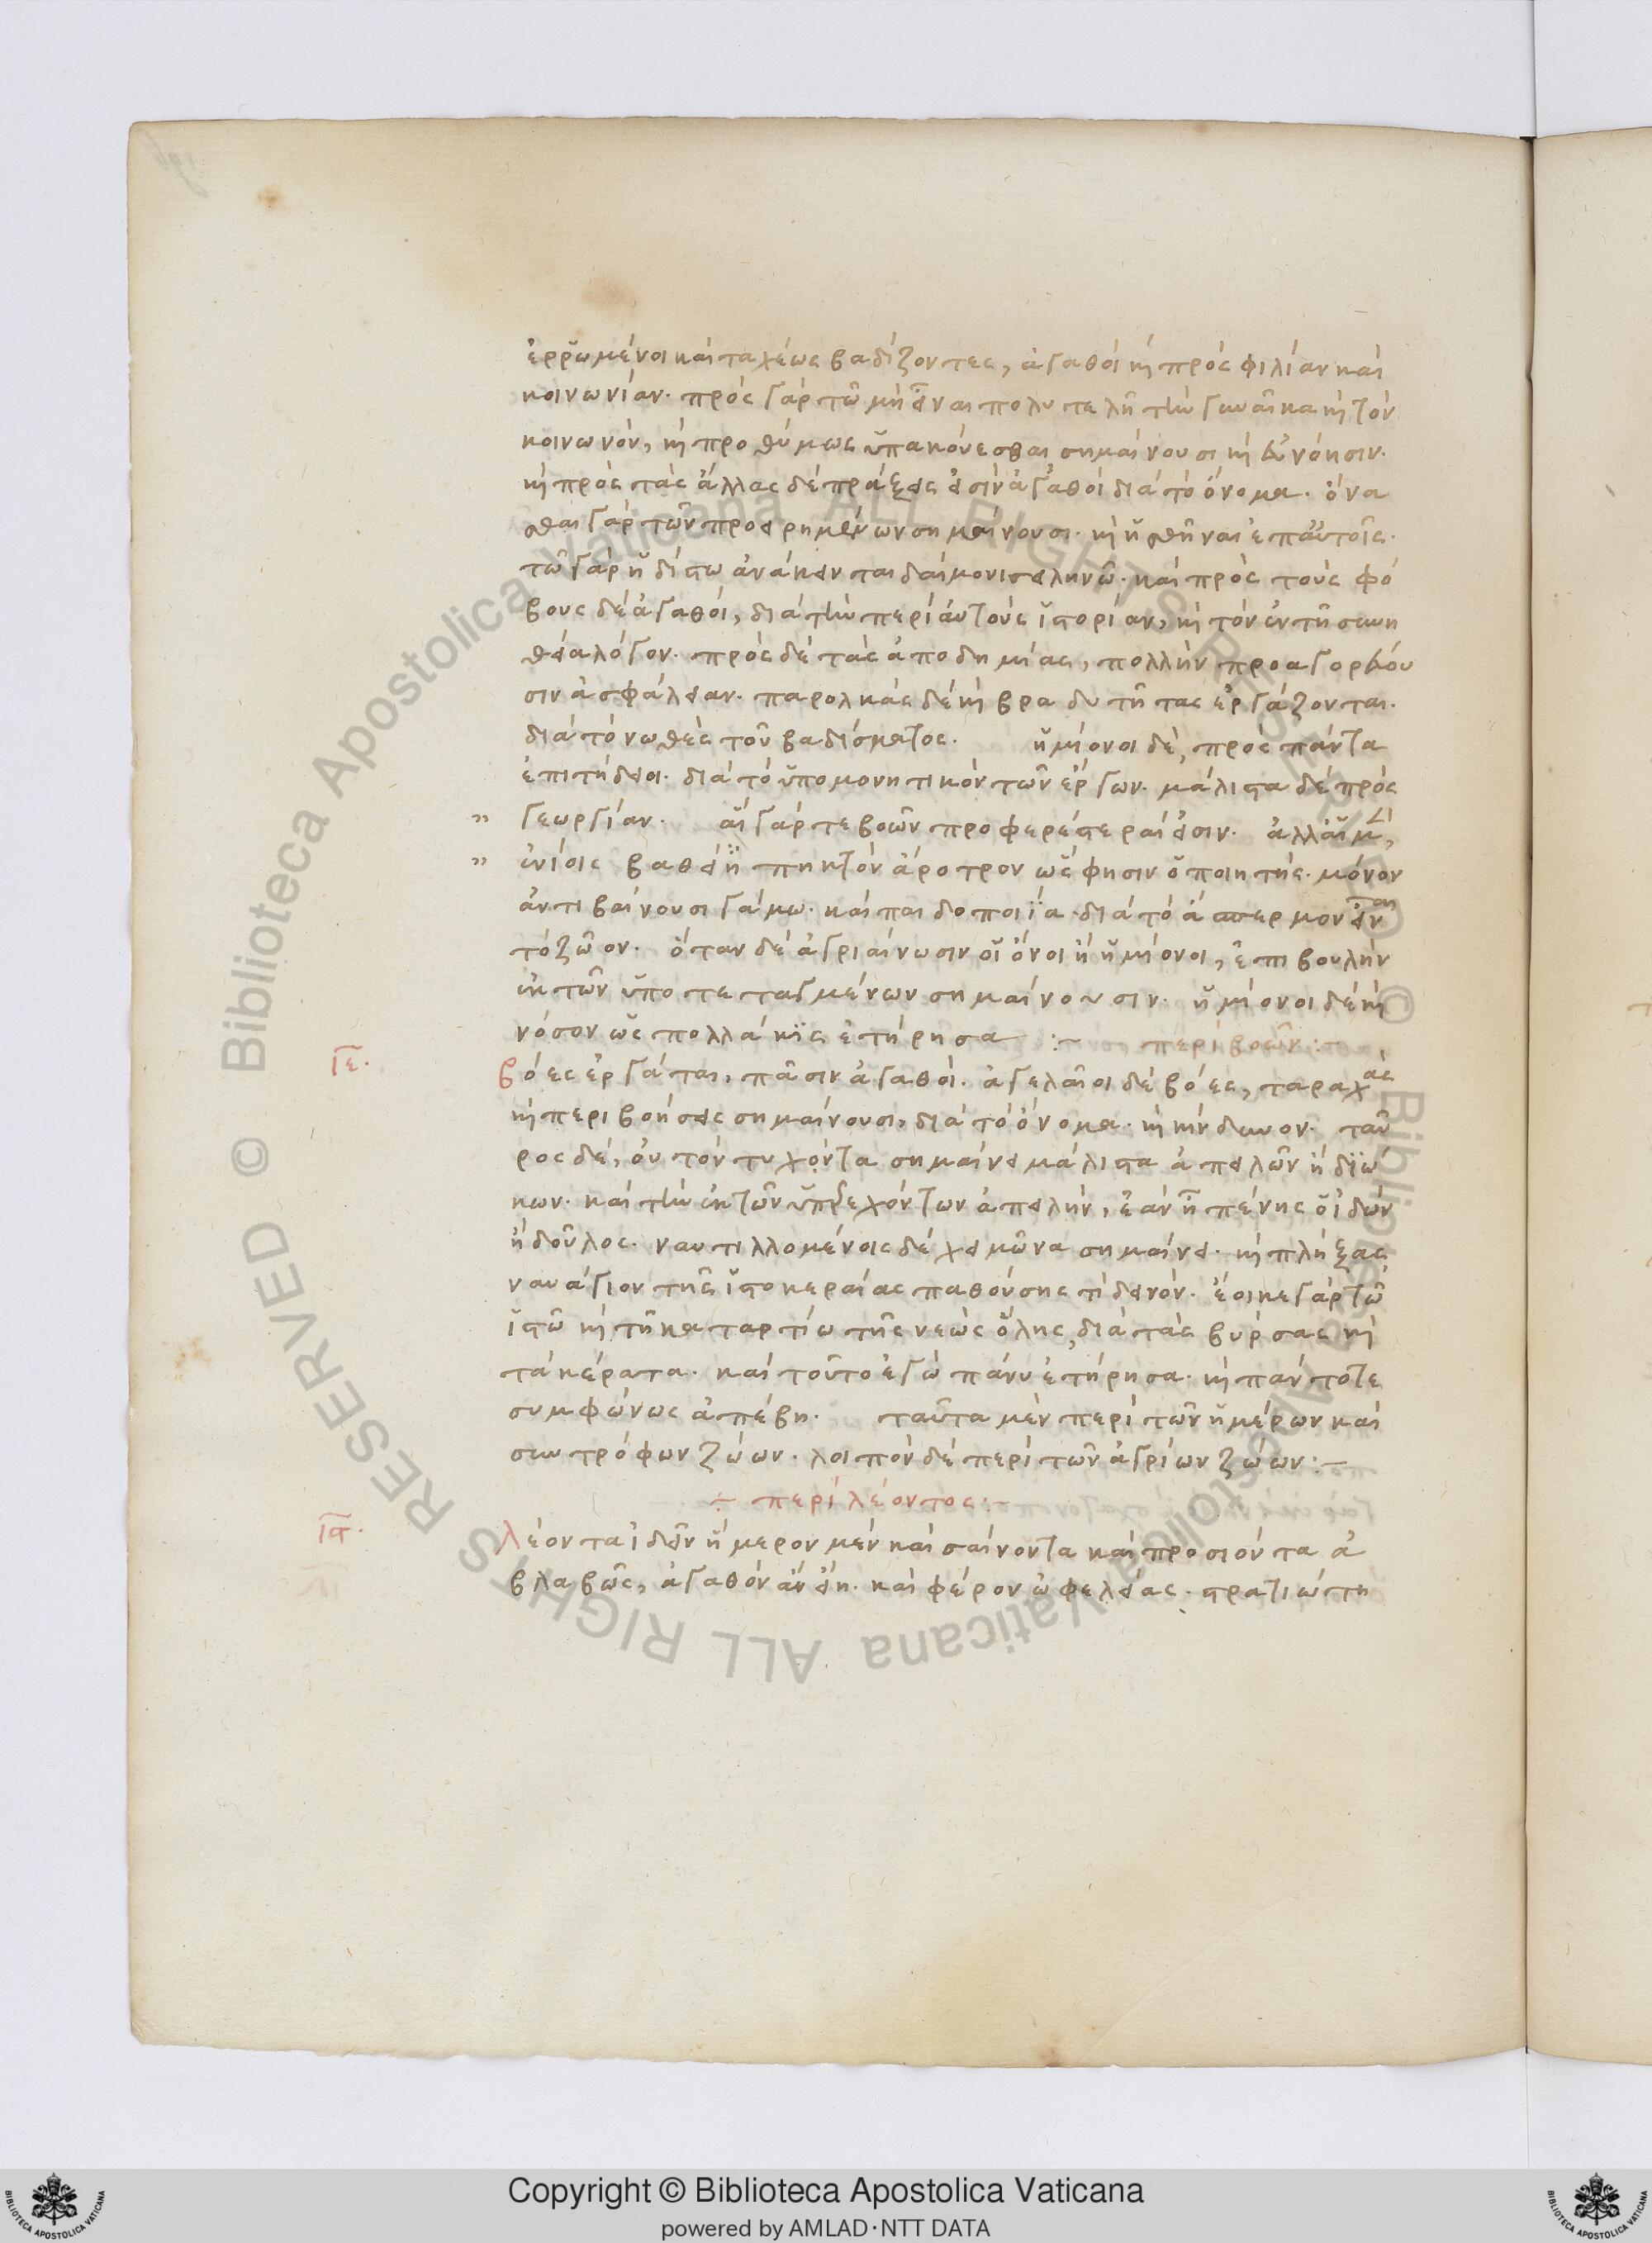 ἐρρωμένοι καὶ ταχέως βαδίζοντες, ἀγαθοὶ καὶ πρὸς φιλίαν καὶ
κοινωνίαν. πρὸς γὰρ τῶ μὴ εἶναι πολυτελῆ τὴν γυναῖκα καὶ τὸν
κοινωνόν, καὶ προθύμως ὑπακούεσθαι σημαίνουσι καὶ εὐνόησιν.
καὶ πρὸς τὰς ἄλλας δὲ πράξεις εἰσὶν ἀγαθοὶ διὰ τὸ ὄνομα. ὄνα
σθαι γὰρ τῶν προειρημένων σημαίνουσι. καὶ ἡσθῆναι ἐπ αὐτοῖς.
τῶ γὰρ ἡδίστω ἀνάκεινται δαίμονι σειληνῶ. καὶ πρὸς τοὺς φό
βους δὲ ἀγαθοί, διὰ τὴν περὶ αὐτοὺς ἱστορίαν, καὶ τὸν ἐν τῆ συνη
θεία λόγον. πρὸς δὲ τὰς ἀποδημίας, πολλὴν προαγορεύου
σιν ἀσφάλειαν. παρολκὰς δὲ καὶ βραδυτῆτας ἐργάζονται.
διὰ τὸ νωθὲς τοῦ βαδίσματος. ἡμίονοι δὲ, πρὸς πάντα
ἐπιτήδειοι. διὰ τὸ ὑπομονητικὸν τῶν ἔργων. μάλιστα δὲ πρὸς
" γεωργίαν. αἱ γάρ τε βοῶν προφερέστεραί εἰσιν.
" νειοῖο βαθείη πηκτὸν ἄροτρον ὥς φησιν ὁ ποιητής. μόνον
ἀντιβαίνουσι γάμω. καὶ παιδοποιΐα. διὰ τὸ ἄσπερμον εἶναι
τὸ ζῶον. ὅταν δὲ ἀγριαίνωσιν οἱ ὄνοι ἢ ἡμίονοι, ἐπιβουλὴν
ἐκ τῶν ὑποτεταγμένων σημαίνουσιν. ἡμίονοι δὲ καὶ
νόσον ὡς πολλάκις ἐτήρησα :~ περὶ βοῶν :~
ιε. βόες ἐργάται, πᾶσιν ἀγαθοί. ἀγελαῖοι δὲ βόες, ταραχὰς
καὶ περιβοήσεις σημαίνουσι, διὰ τὸ ὄνομα. καὶ κίνδυνον. ταῦ
ρος δέ, οὐ τὸν τυχόντα σημαίνει μάλιστα ἀπειλῶν ἢ διώ
κων. καὶ τὴν ἐκ τῶν ὑπερεχόντων ἀπειλήν, ἐὰν ἦ πένης ὁ ἰδὼν
ἢ δοῦλος. ναυτιλλομένοις δὲ χειμῶνα σημαίνει. καὶ πλήξας
ναυάγιον τῆς ἱστοκεραίας παθούσης τὶ δεινόν. ἔοικε γὰρ τῶ
ἱστῶ καὶ τῆ καταρτίω τῆς νεὼς ὅλης, διὰ τὰς βύρσας καὶ
τὰ κέρατα. καὶ τοῦτο ἐγὼ πάνυ ἐτήρησα. καὶ πάντοτε
συμφώνως ἀπέβη. ταῦτα μὲν περὶ τῶν ἡμέρων καὶ
συντρόφων ζώων. λοιπὸν δὲ περὶ τῶν ἀγρίων ζώων :~
÷ περὶ λέοντος :~
ιϛ. λέοντα ἰδεῖν ἥμερον μὲν καὶ σαίνοντα καὶ προσιόντα ἀ
βλαβῶς, ἀγαθὸν ἂν εἴη. καὶ φέρον ὠφελείας. στρατιώτη
Copyright © Biblioteca Apostolica Vaticana
powered by AMLAD·NTT DATA